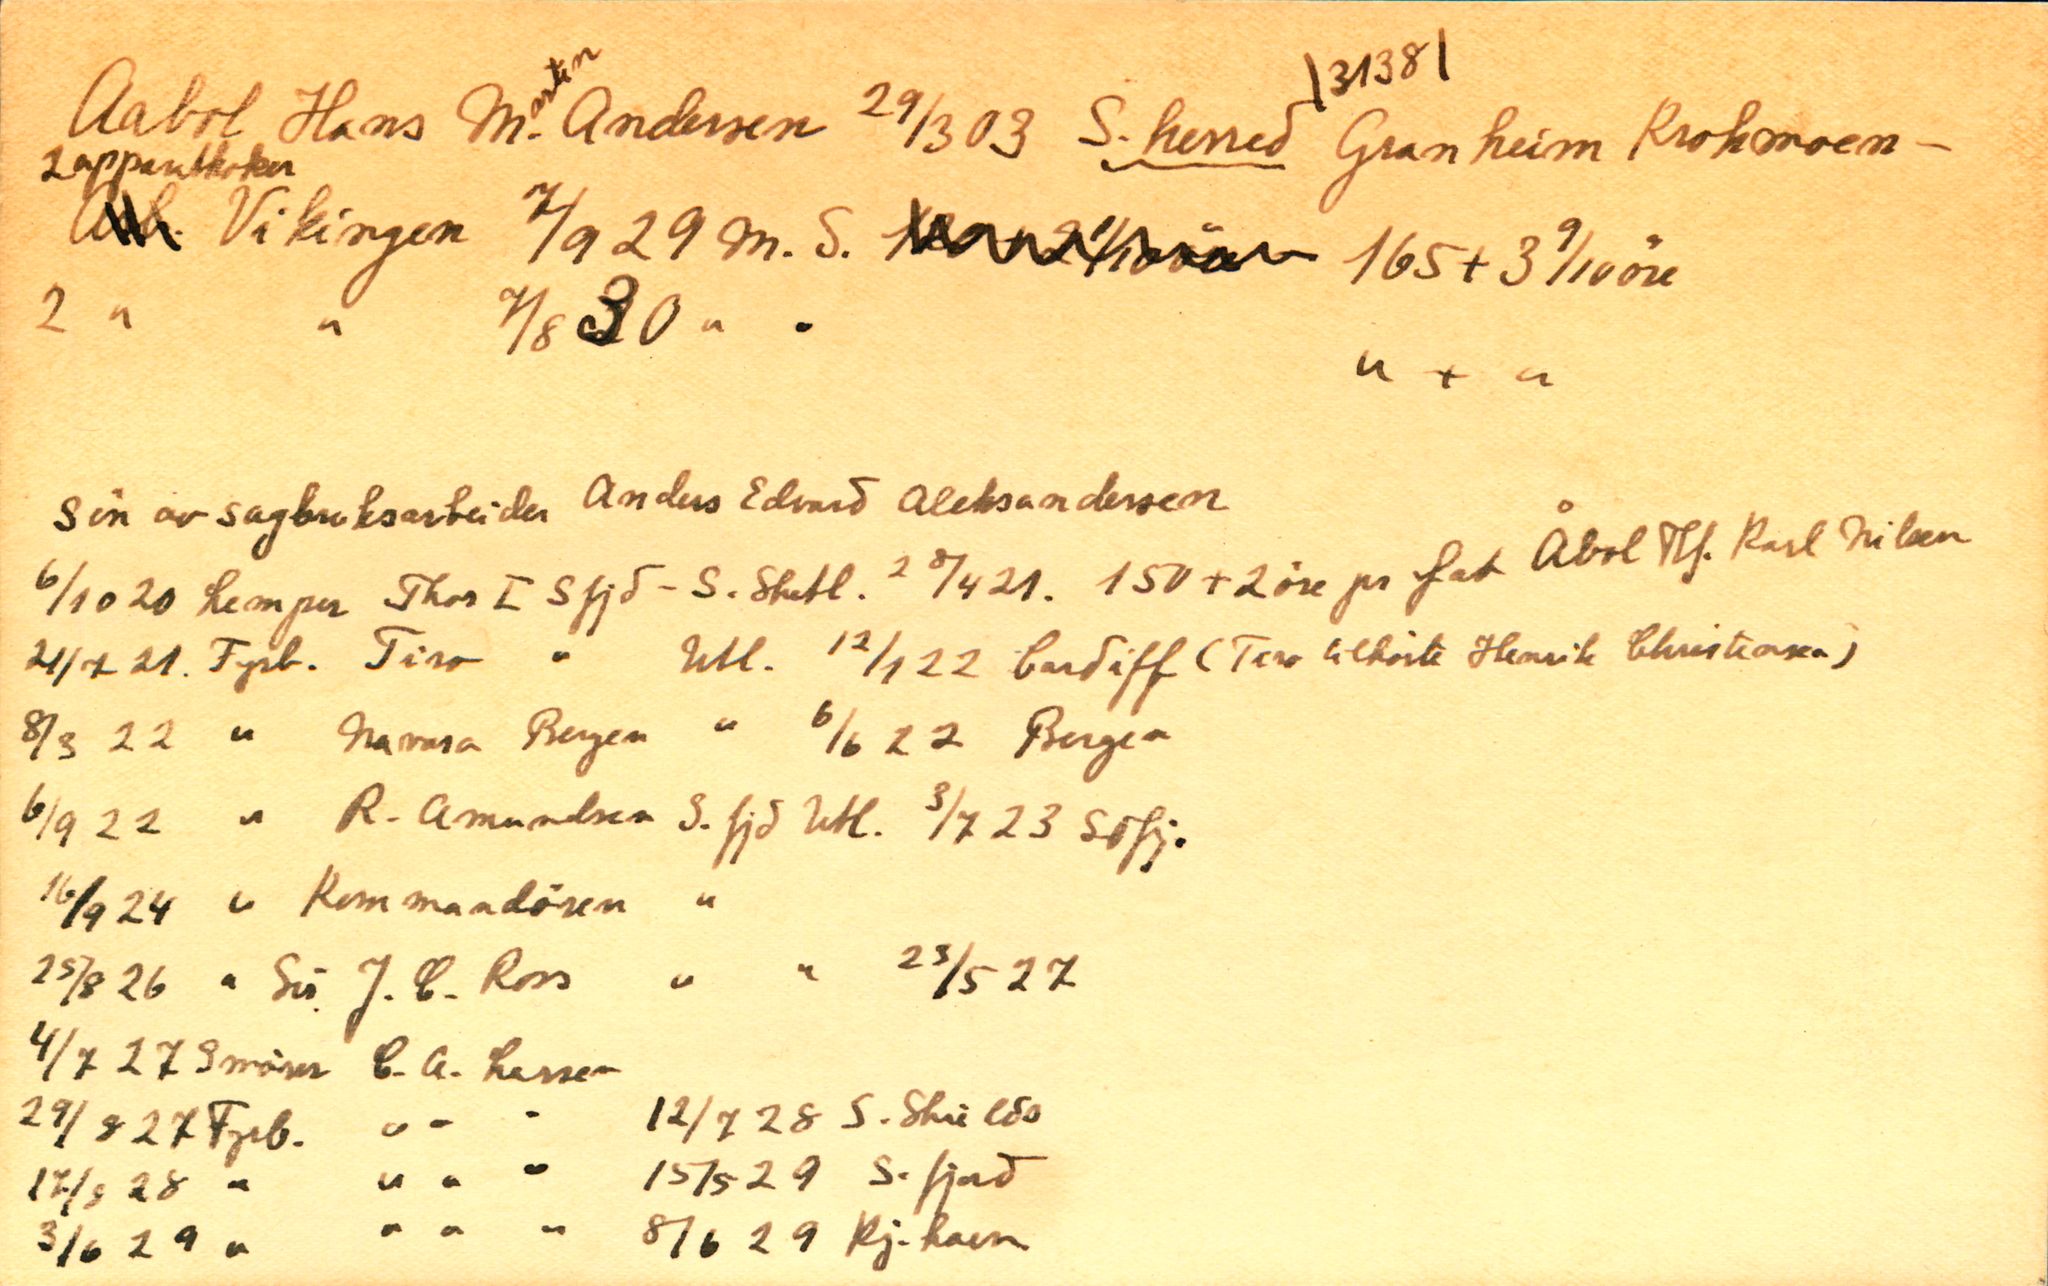 |3138|
Aabol Hans Martin Andersen 29/3 03 S. herred Granheim Krokmoen -
2 apparatkoker
Vikingen 7/9 29 M. S. 165 + 3 9/10 öre
2 " " 7/8 30 " "
" + "
Sön av sagbruksarbeider Anders Edvard Aleksandersen
Åbol Tlf. Karl Nilsen
6/10 20 Lemper Thor I Sfjd - S. Shetl. 28/4 21. 150 + 2 öre pr fat
21/7 21. Fyrb. Tiro " Utl. 12/1 22 Cardiff (Tiro tilhörte Henrik Christensen)
8/3 22 " Navara Bergen " 6/6 22 Bergen
6/9 22 " R. Amundsen S. fjd Utl. 3/7 23 Sdfj.
16/9 24 " Kommandören "
25/8 26 " Sir J. C. Ross " " 23/5 27
4/7 27 Smörer C. A. Larsen
29/8 27 Fyrb. " " " 12/7 28 S. Shields
17/8 28 " " " " 15/5 29 S. fjord
3/6 29 " " " " 8/6 29 Kj. havn